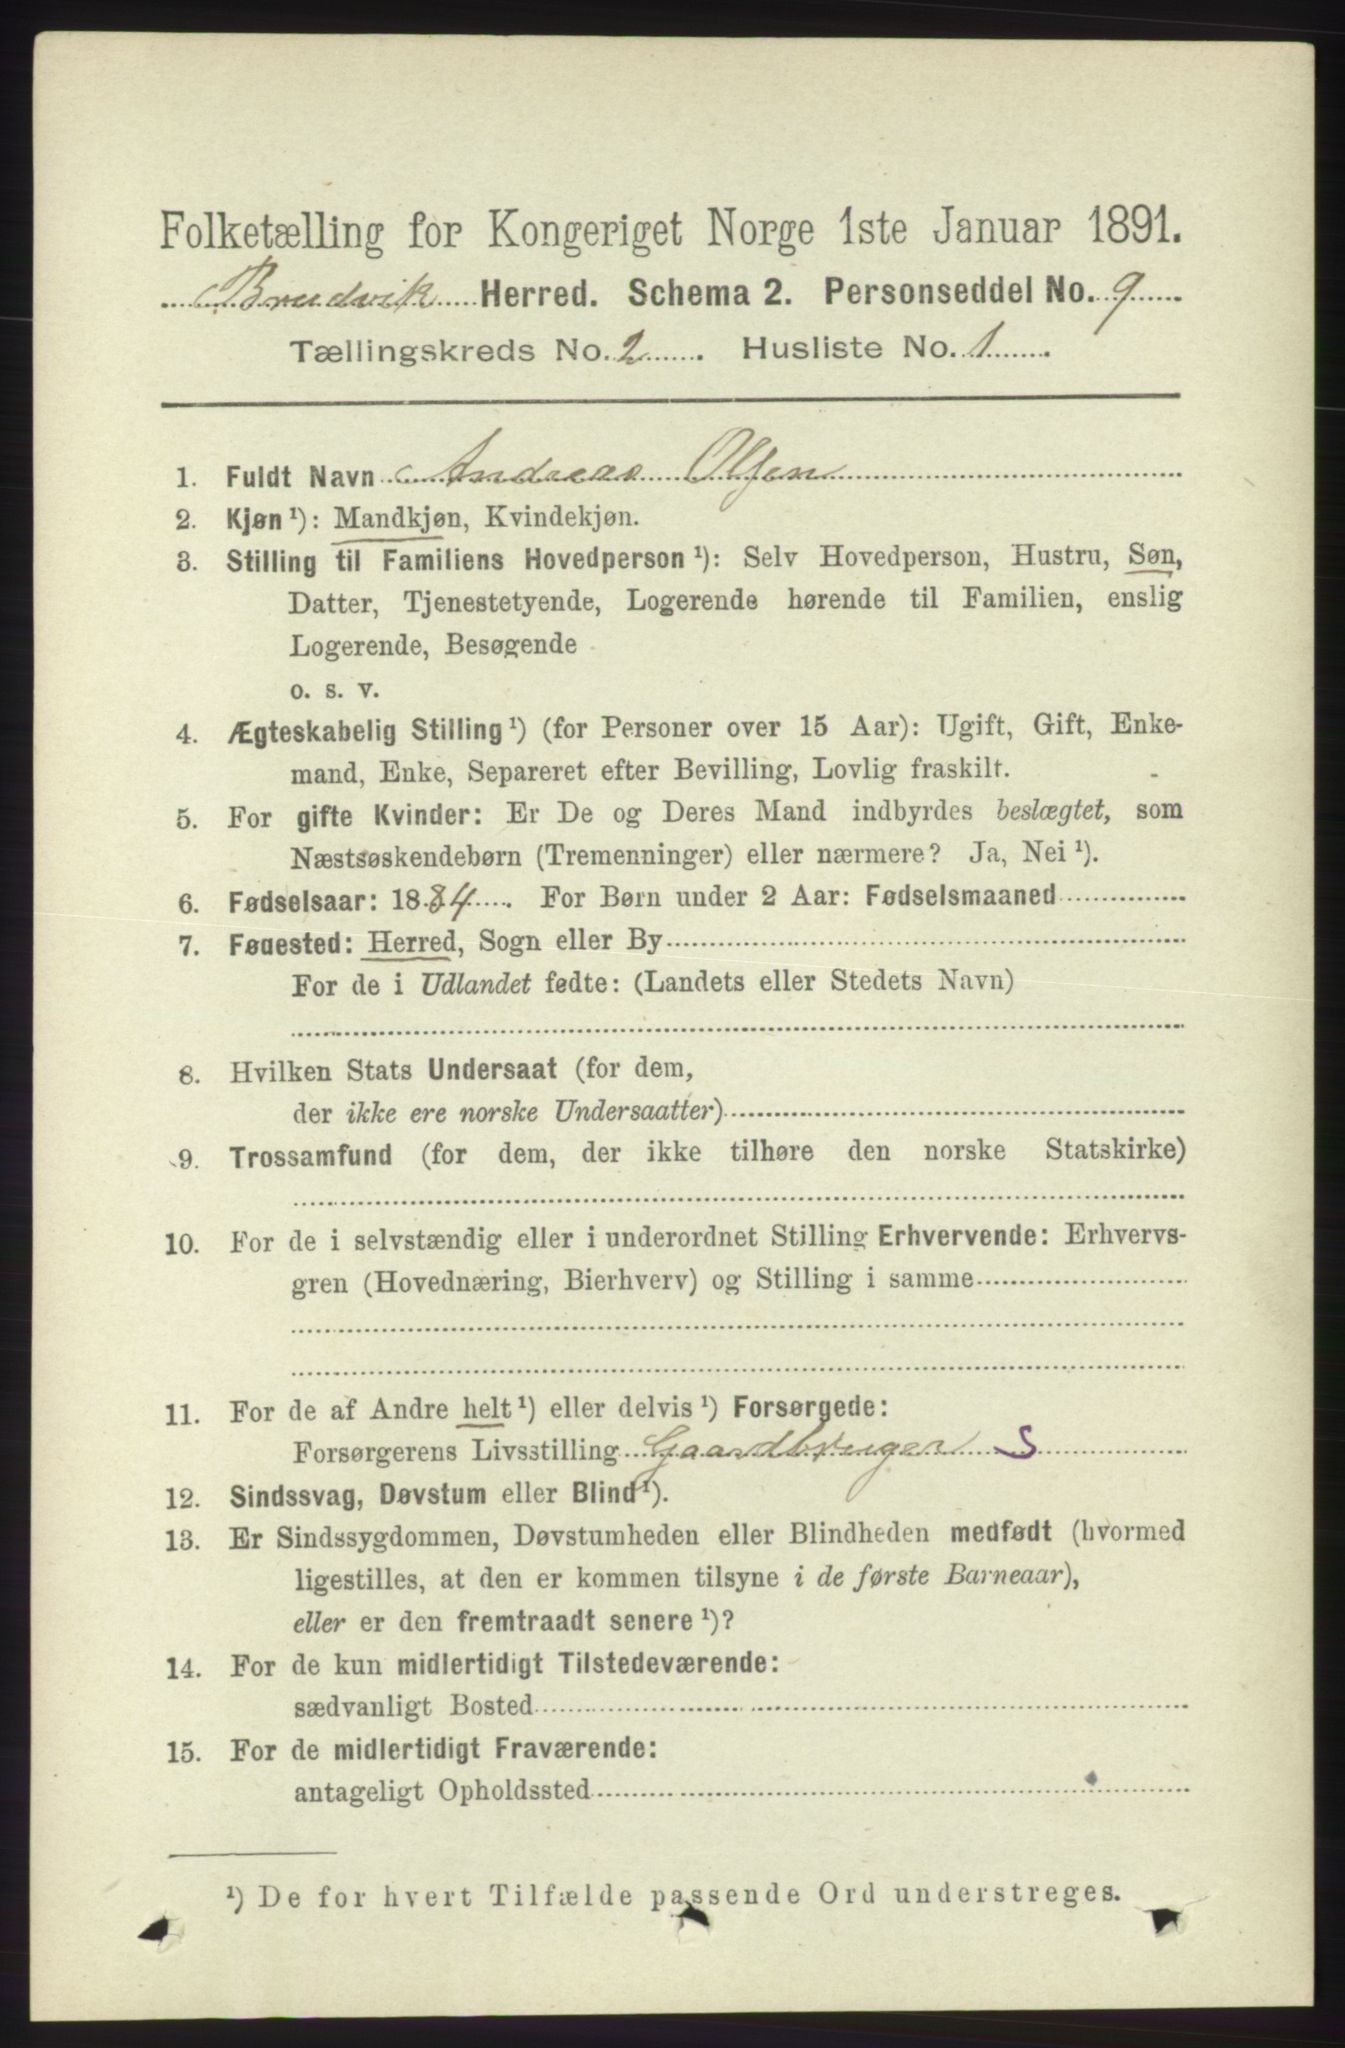 Folketælling for Kongeriget Norge 1ste Januar 1891.
Brudvik Herred. Schema 2. Personseddel No. 9
Tællingskreds No. 2. Husliste No. 1.
1. Fuldt Navn Andreas Olsen
2. Kjøn ¹): Mandkjøn, Kvindekjøn.
3. Stilling til Familiens Hovedperson ¹): Selv Hovedperson, Hustru, Søn,
Datter, Tjenestetyende, Logerende hørende til Familien, enslig
Logerende, Besøgende
o. s. v.
4. Ægteskabelig Stilling ¹) (for Personer over 15 Aar): Ugift, Gift, Enke-
mand, Enke, Separeret efter Bevilling, Lovlig fraskilt.
5. For gifte Kvinder: Er De og Deres Mand indbyrdes beslægtet, som
Næstsøskendebørn (Tremenninger) eller nærmere? Ja, Nei ¹).
6. Fødselsaar: 1884. For Børn under 2 Aar: Fødselsmaaned
7. Føuested: Herred, Sogn eller By
For de i Udlandet fødte: (Landets eller Stedets Navn)
8. Hvilken Stats Undersaat (for dem,
der ikke ere norske Undersaatter)
9. Trossamfund (for dem, der ikke tilhøre den norske Statskirke)
10. For de i selvstændig eller i underordnet Stilling Erhvervende: Erhvervs-
gren (Hovednæring, Bierhverv) og Stilling i samme
11. For de af Andre helt ¹) eller delvis ¹) Forsørgede:
Forsørgerens Livsstilling Gaardbruger S
12. Sindssvag, Døvstum eller Blind ¹).
13. Er Sindssygdommen, Døvstumheden eller Blindheden medfødt (hvormed
ligestilles, at den er kommen tilsyne i de første Barneaar),
eller er den fremtraadt senere ¹)?
14. For de kun midlertidigt Tilstedeværende:
sædvanligt Bosted
15. For de midlertidigt Fraværende:
antageligt Opholdssted
¹) De for hvert Tilfælde passende Ord understreges.